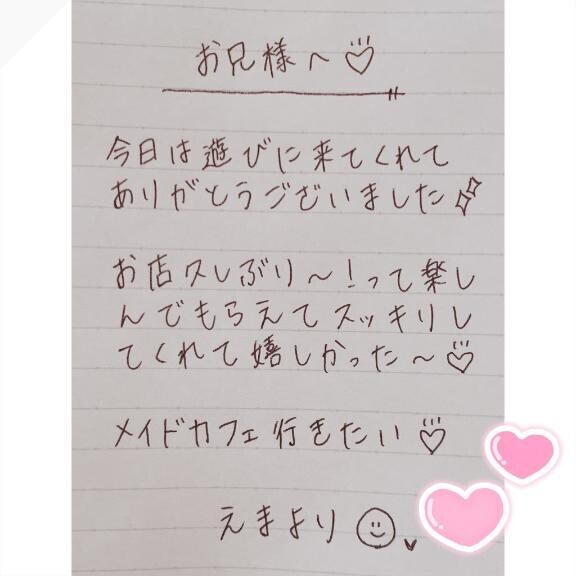 お兄様へ♡
今日は遊びに来てくれて
ありがとうございました✨
お店久しぶり〜！って楽し
んでもらえてスッキリし
てくれて嬉しかった〜♡
メイドカフェ行きたい♡
えまより